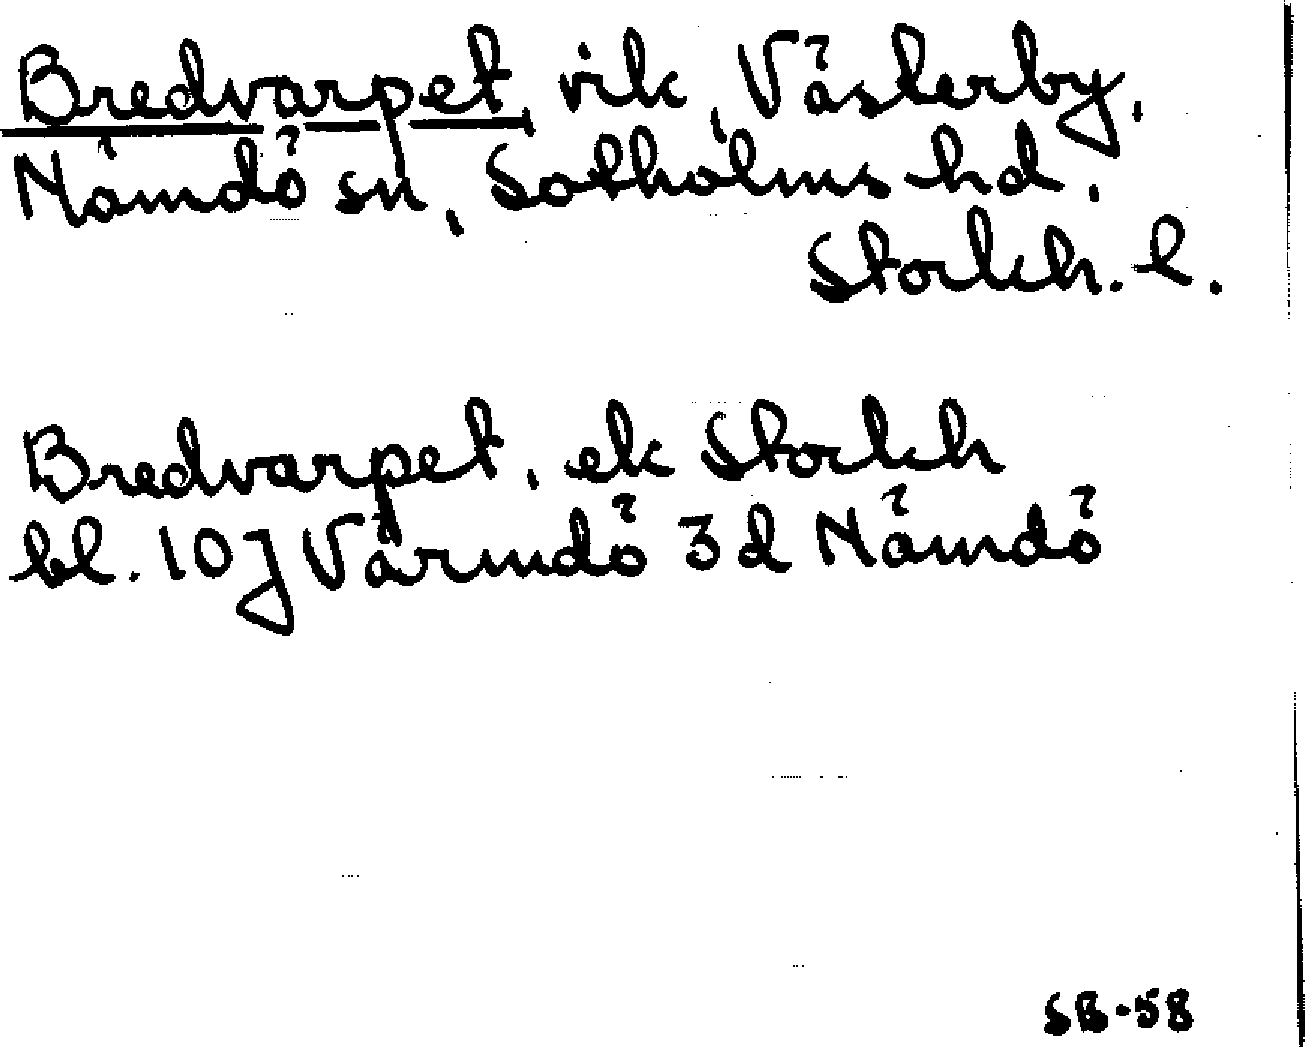 Bredvarpet, vik, Västerby,
Nämdö sn, Sotholms hd.
Stockh. l.
Bredvarpet, ek Stockh
bl. 10j Värmdö 3d Nämdö
SB-58